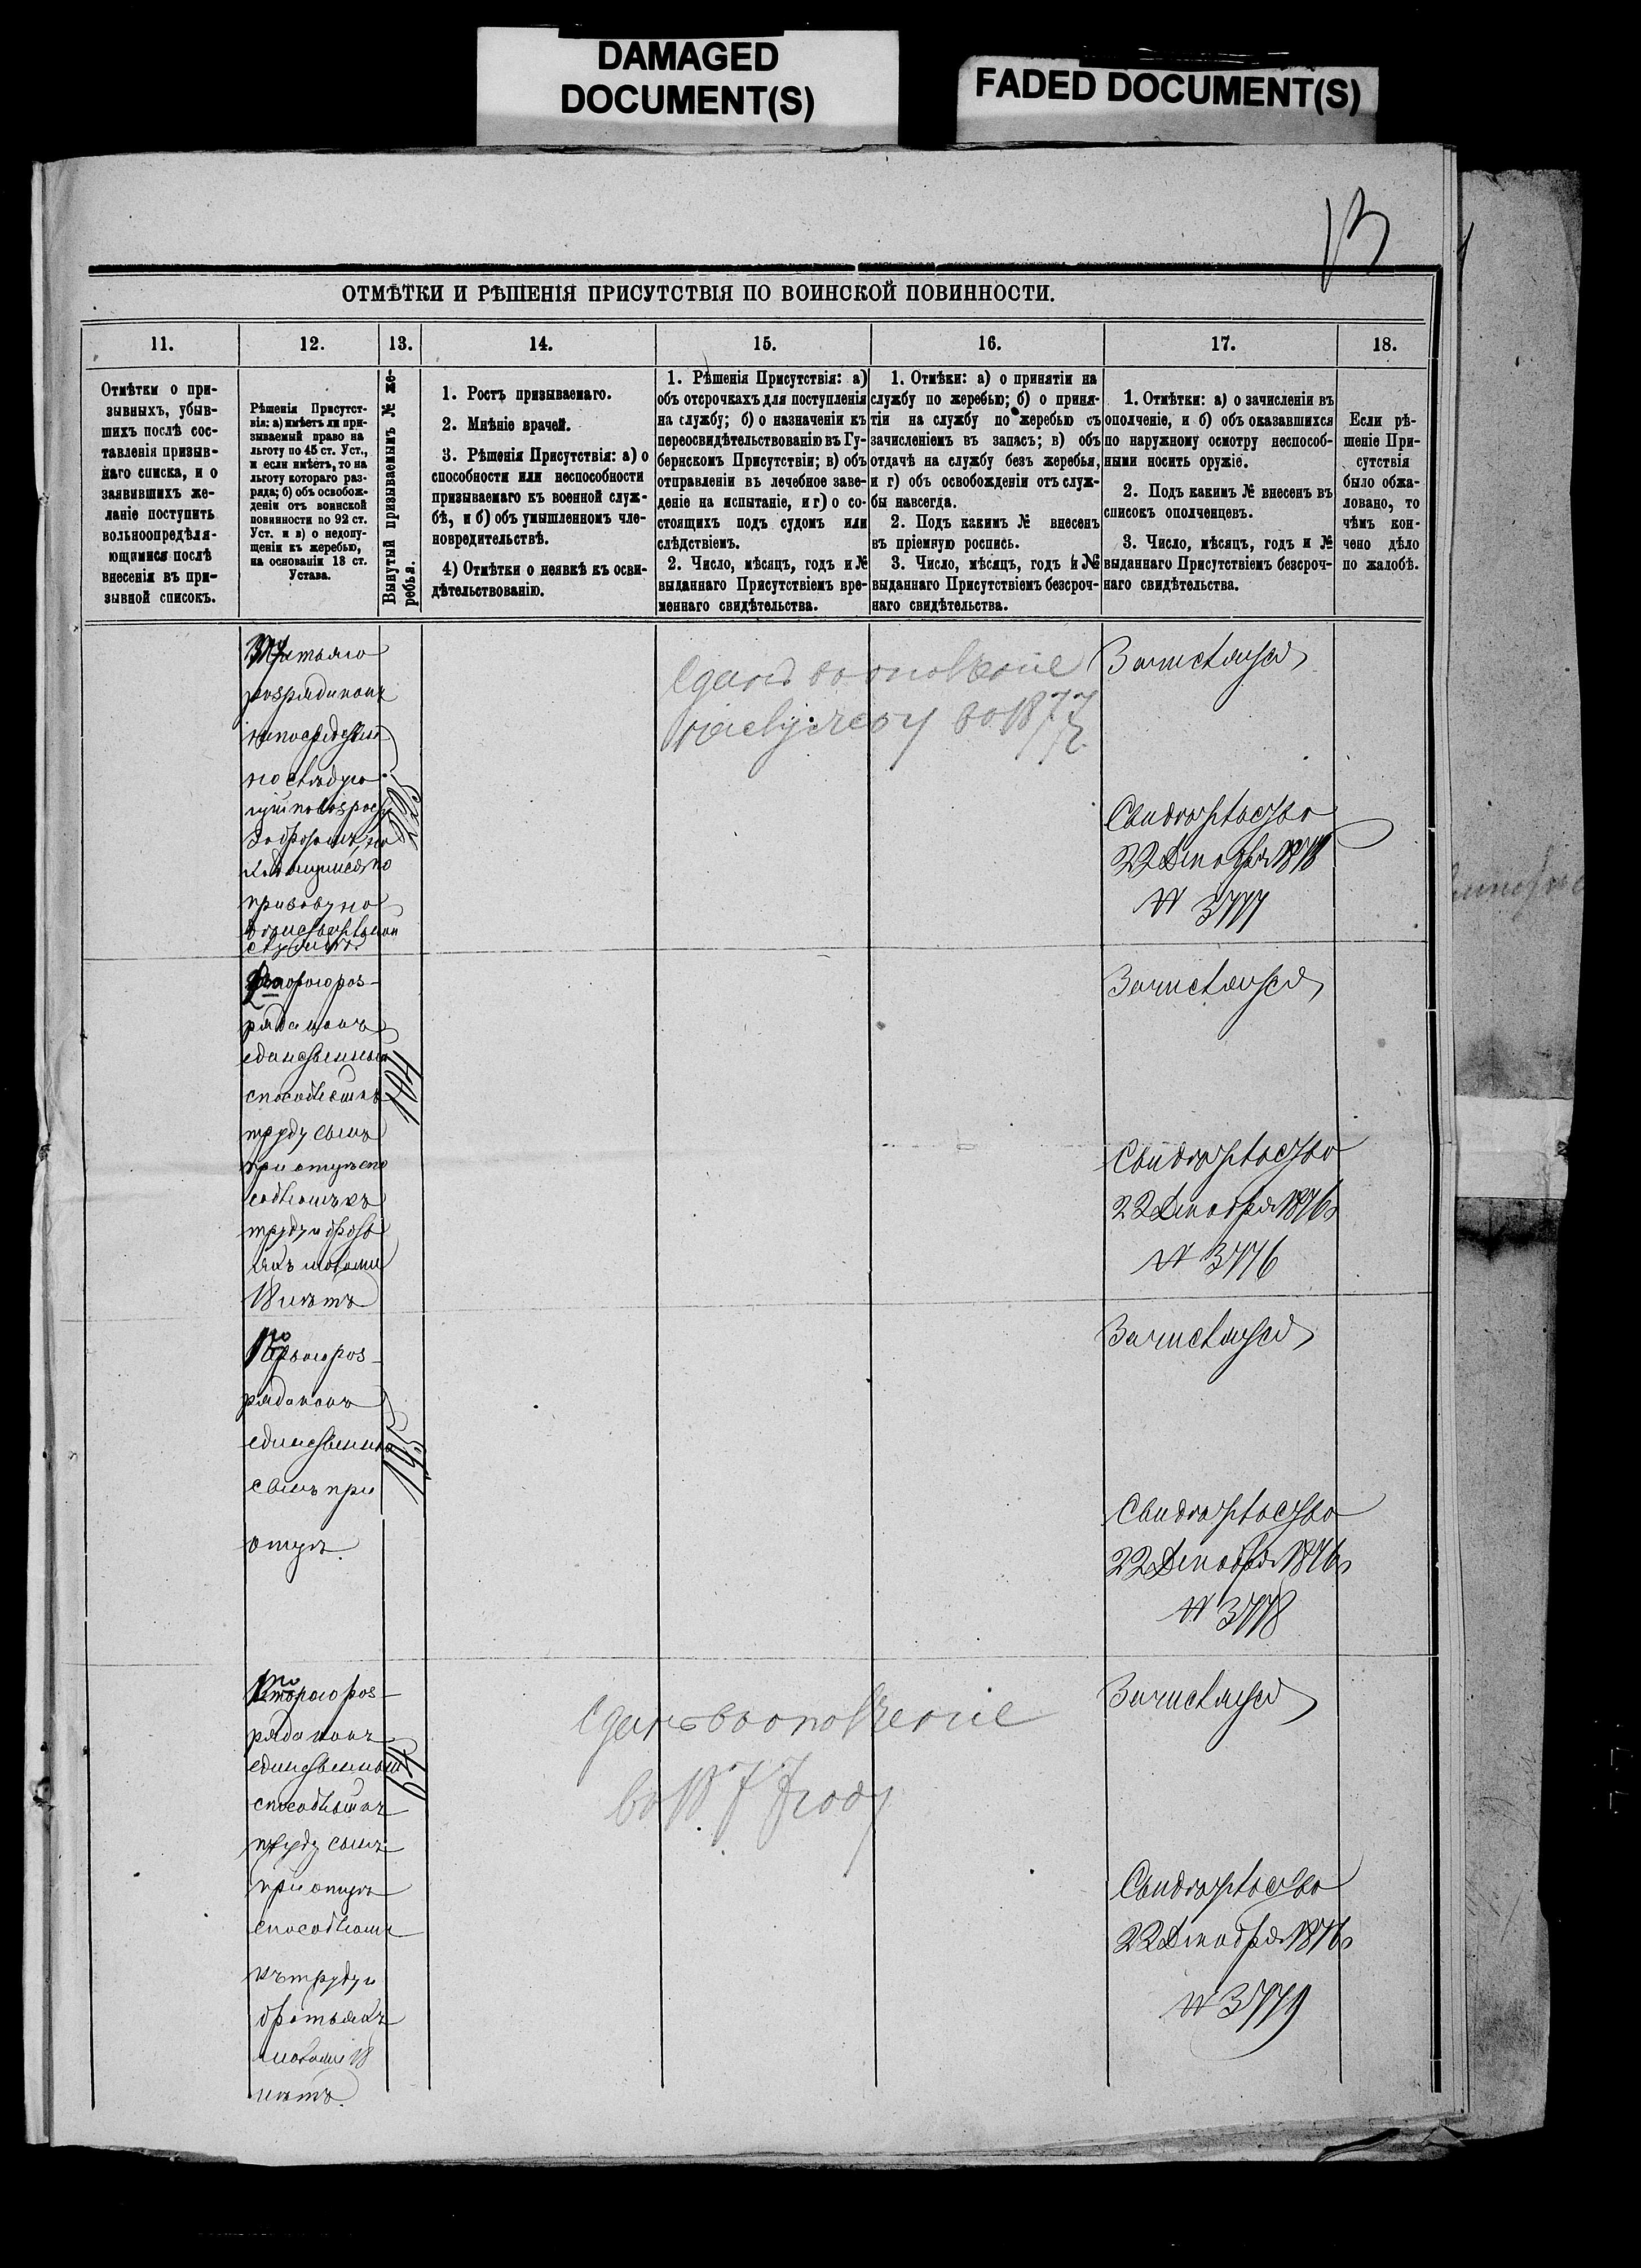 DAMAGED
DOCUMENT(S)
FADED DOCUMENT(S)
13
ОТМѢТКИ И РѢШЕНІЯ ПРИСУТСТВІЯ ПО ВОИНСКОЙ ПОВИННОСТИ.
11.
12.
13.
14.
15.
16.
17.
18.
Отмѣтки о при-
зывныхъ, убыв-
шихъ послѣ сос-
тавленія призыв-
наго списка, и о
заявившихъ же-
ланіе поступить
вольноопредѣля-
ющимися послѣ
внесенія въ при-
зывной списокъ.
Рѣшенія Присутст-
вія: а) имѣетъ ли при-
зываемый право на
льготу по 45 ст. Уст.,
и если имѣетъ, то на
льготу котораго раз-
ряда; б) объ освобож-
деніи отъ воинской
повинности по 92 ст.
Уст. и в) о недопу-
щеніи къ жеребью,
на основаніи 13 ст.
Устава.
Вынутый призываемымъ № же-
ребья.
1. Ростъ призываемаго.
2. Мнѣніе врачей.
3. Рѣшенія Присутствія: а) о
способности или неспособности
призываемаго къ военной служ-
бѣ, и б) объ умышленномъ чле-
новредительствѣ.
4) Отмѣтки о неявкѣ къ осви-
дѣтельствованію.
1. Рѣшенія Присутствія: а)
объ отсрочкахъ для поступленія
на службу; б) о назначеніи къ
переосвидѣтельствованію въ Гу-
бернскомъ Присутствіи; в) объ
отправленіи въ лечебное заве-
деніе на испытаніе, и г) о со-
стоящихъ подъ судомъ или
слѣдствіемъ.
2. Число, мѣсяцъ, годъ и №
выданнаго Присутствіемъ вре-
меннаго свидѣтельства.
1. Отмѣки: а) о принятіи на
службу по жеребью; б) о приня-
тіи на службу по жеребью съ
зачисленіемъ въ запасъ; в) объ
отдачѣ на службу безъ жеребья,
и г) объ освобожденіи отъ служ-
бы навсегда.
2. Подъ какимъ № внесенъ
въ пріемную роспись.
3. Число, мѣсяцъ, годъ и №
выданнаго Присутствіемъ безсроч-
наго свидѣтельства.
1. Отмѣтки: а) о зачисленіи въ
ополченіе, и б) объ оказавшихся
по наружному осмотру неспособ-
ными носить оружіе.
2. Подъ какимъ № внесенъ въ
списокъ ополченцевъ.
3. Число, мѣсяцъ, годъ и №
выданнаго Присутствіемъ безсроч-
наго свидѣтельства.
Если рѣ-
шеніе При-
сутствія
было обжа-
ловано, то
чѣмъ кон-
чено дѣло
по жалобѣ.
Третьяго
разряда какъ
непосредствен
но слѣдую
щій по возрасту
за братомъ, на
ходящимся по
призыву на
дѣйствительной
службѣ.
225
въ ополченіе
въ 1877 г.
Зачисляется
Свидѣтельство
22 Декабря 1876
№ 3777
Второго раз-
ряда какъ
единственный
способный къ
труду сынъ
при отцѣ спо
собномъ къ
труду и брать
яхъ моложе
18 лѣтъ
104
Зачисляется
Свидѣтельство
22 Декабря 1876
№ 3776
Перваго раз-
ряда какъ
единственный
сынъ при
отцѣ.
195
Зачисляется
Свидѣтельство
22 Декабря 1876
№ 3778
Второго раз-
ряда какъ
единственный
способный къ
труду сынъ
при отцѣ
способномъ
къ труду и
братьяхъ
моложе 18
лѣтъ.
64
въ ополченіе
въ 1877 году
Зачисляется
Свидѣтельство
22 Декабря 1876
№ 3779